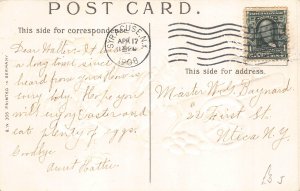 POST CARD.
This side for correspondence
SYRACUSE, N.Y.
APR 17
1908
This side for address.
Dear Walter - It has been
a long time since I
heard from you. How is
every body. Hope you
will enjoy Easter and
eat plenty of eggs.
Goodbye
Aunt Hattie
Master W. S. Baynard
22 First St.
Utica N.Y.
PRINTED IN GERMANY